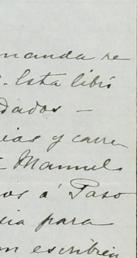 manda re
Esta libró
dados —
ias y carre
Manuel
os á Paso
cia para
n escribien